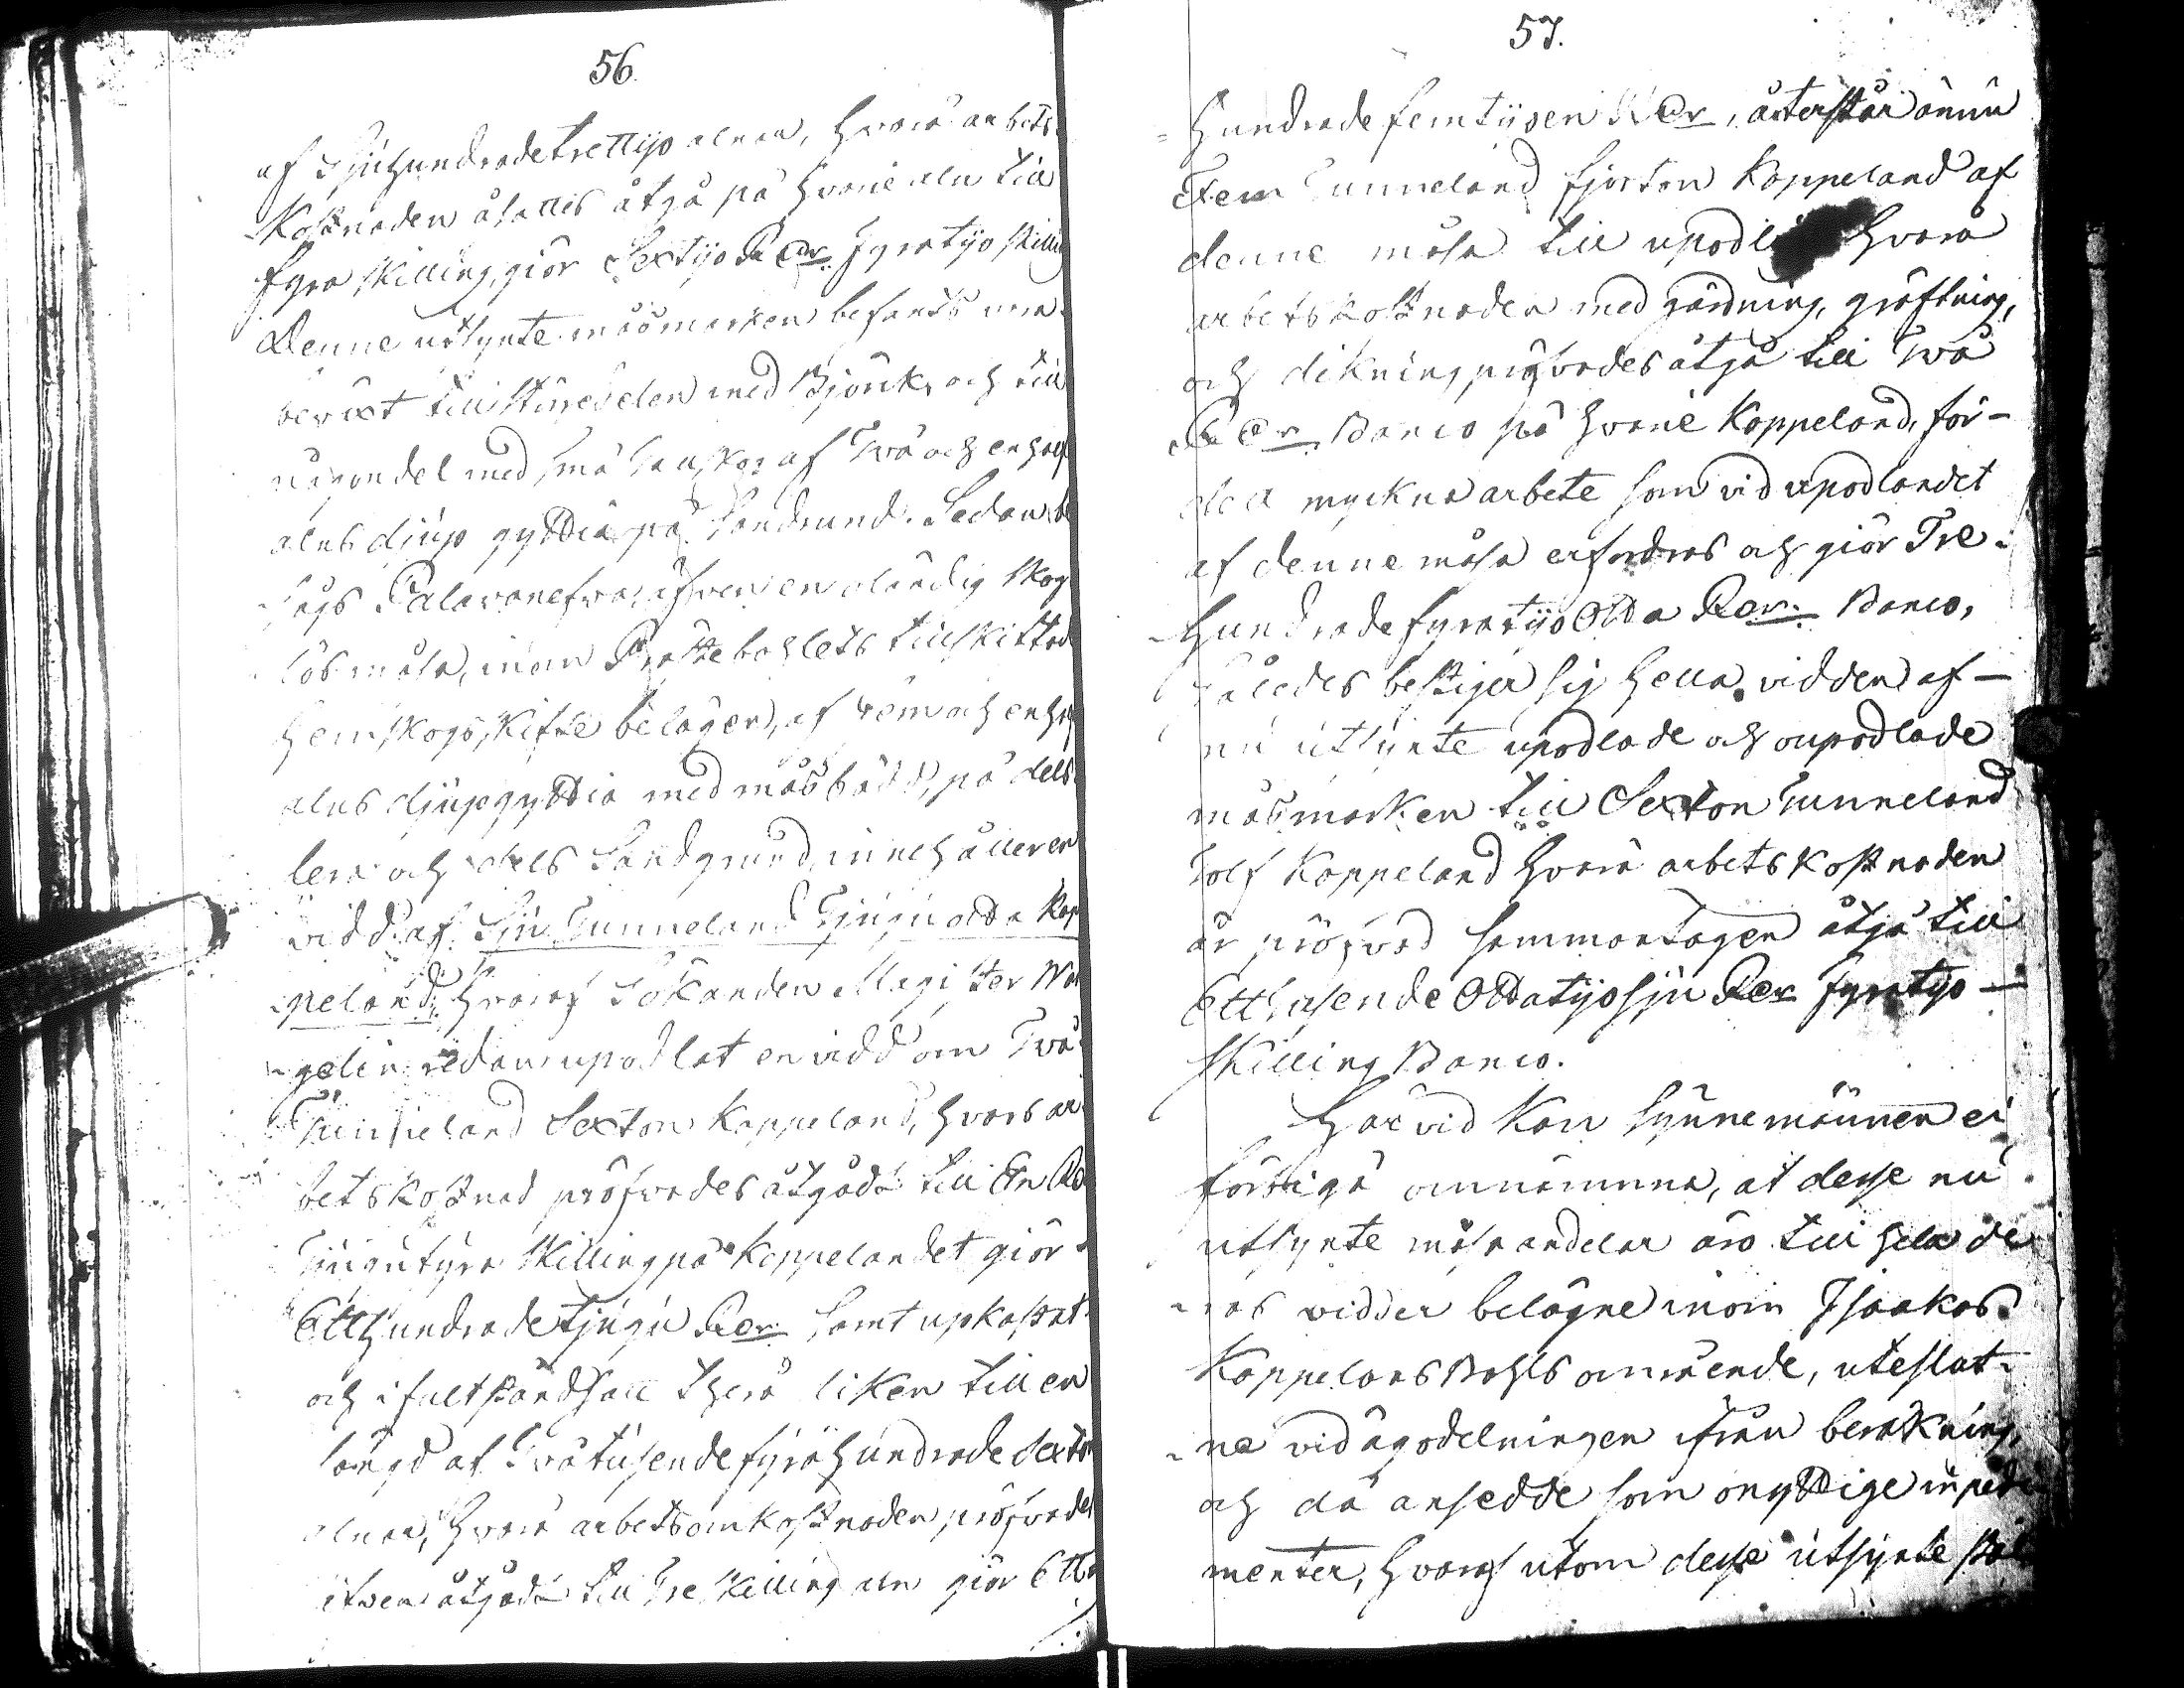 56.
af Sjuhundrade trettijo alnar, hvarå arbets
kostnaden åsattes åtgå på hvarie aln till
fyra skilling, giör Sextijo Rdr. fyratijo skilling
Denne utsynte måsmarken befants vara
bevuxt till större delen med Björk, och till
någon del med små buskar af Twå och en half
alns djup gyttia på Sandgrund. Sedan be
sågs Palavanefva, äfven en oländig skog
lös måsa, inom Prästebohlets tillskiftad
hemskogsskifte belägen, af fem och en half
alns djup gyttia med måsbädd, på dels
lera och dels Sandgrund, innehåller en
vidd af Sju Tunneland Tjugu otta kap
peland; hvaraf Sökanden Magister Wa
gelin redan upodlat en vidd om Twå
Tunneland Sexton kappeland, hvars ar
bets kostnad pröfvades åtgådt till En Rdr
Tjugufyra skilling på kappelandet giör
Etthundrade tjugu Rdr. samt upkastat
och i fult ståndsatt therå diken till en
längd af Twåtusende fyrahundrade sexton
alnar, hvarå arbetsomkostnaden pröfvades
äfven åtgådt till Tre skilling aln giör Ett
57.
hundrade femtijoen Rdr, återstår ännu
Fem Tunneland fjorton kappeland af
denne måsa till upodling hvarå
arbetskostnaden med gärdning, gräftning,
och dikning pröfvades åtgå till Twå
Rdr Banco på hvarie kappeland, för
det myckna arbete som vid upodlandet
af denne måsa erfordras och giör Tre
hundrade fyratijo otta Rdr. Banco,
således bestiger sig hella vidden af
nu utsynte upodlade och oupodlade
måsmarken till Sexton Tunneland
Tolf kappeland hvarå arbetskostnaden
är pröfvad sammantagen åtgå till
Ett tusende Ottatijosju Rdr fyratijo
skilling Banco.
Härvid kan synnemännen ei
förbigå omnämna, at desse nu
utsynte måsandelar äro till hela de
ras vidder belägne inom Isaakas
Kappelans Bohls omräende, uteslut
ne vid ägodelningen ifrån beräkning,
och då ansedde som onyttige inpedi
menter, hvaraf utom desse utsynte stå